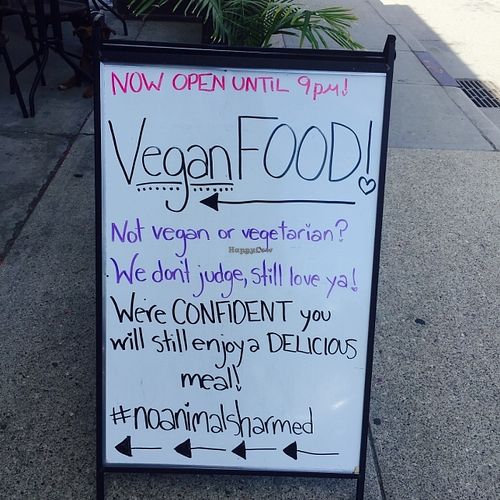 NOW OPEN UNTIL 9pm!
Vegan FOOD!
Not vegan or vegetarian?
HappyCow
We don't judge, still love ya!
We're CONFIDENT you
will still enjoy a DELICIOUS
meal!
#noanimalsharmed